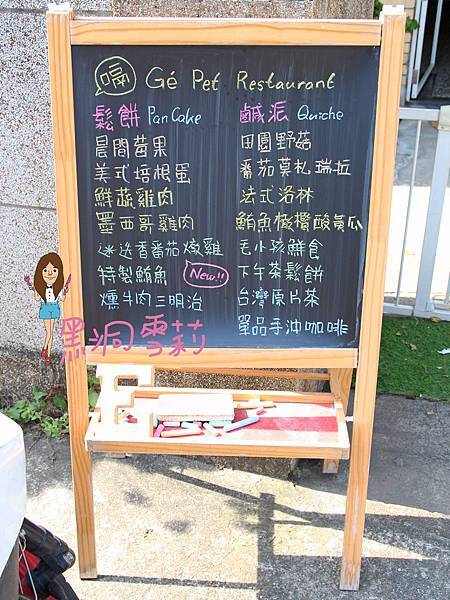 嗝 Gé Pet Restaurant
鬆餅 Pan Cake
晨間莓果
美式培根蛋
鮮蔬雞肉
墨西哥雞肉
迷迭香番茄燉雞
特製鮪魚 New!!
燻牛肉三明治
鹹派 Quiche
田園野菇
番茄莫札瑞拉
法式洛林
鮪魚橄欖酸黃瓜
毛小孩鮮食
下午茶鬆餅
台灣原片茶
單品手沖咖啡
黑洞雪莉